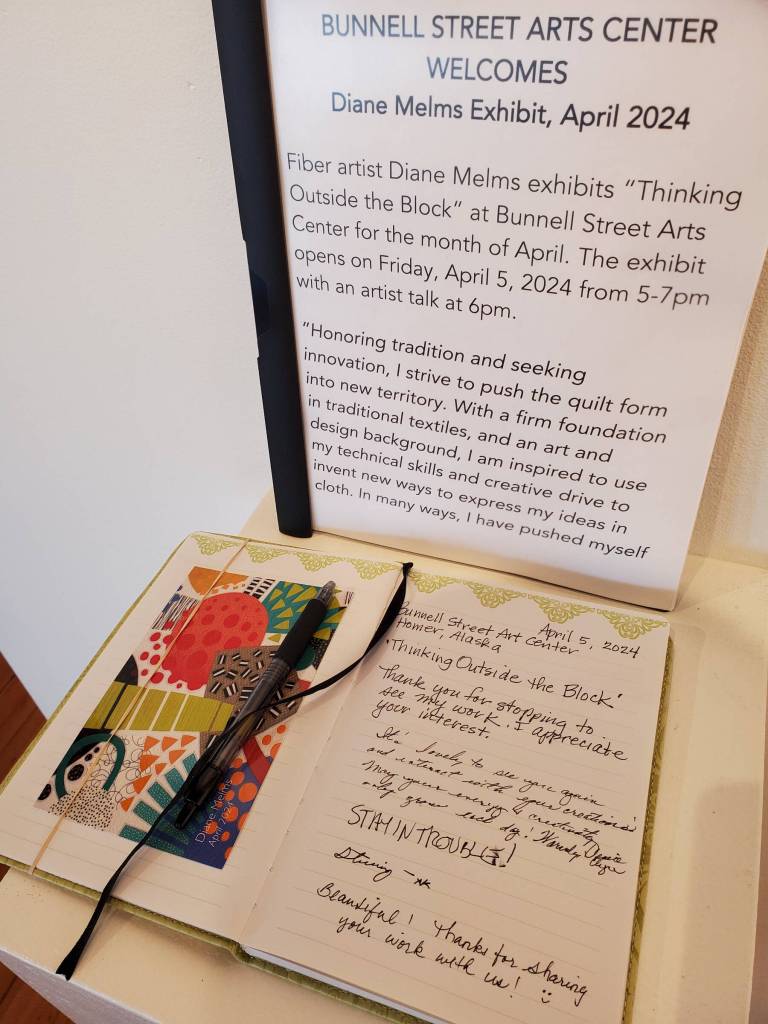 BUNNELL STREET ARTS CENTER
WELCOMES
Diane Melms Exhibit, April 2024
Fiber artist Diane Melms exhibits “Thinking
Outside the Block” at Bunnell Street Arts
Center for the month of April. The exhibit
opens on Friday, April 5, 2024 from 5-7pm
with an artist talk at 6pm.
“Honoring tradition and seeking
innovation, I strive to push the quilt form
into new territory. With a firm foundation
in traditional textiles, and an art and
design background, I am inspired to use
my technical skills and creative drive to
invent new ways to express my ideas in
cloth. In many ways, I have pushed myself
Diane Melms
April 2024
April 5, 2024
Bunnell Street Art Center
Homer, Alaska
"Thinking Outside the Block"
Thank you for stopping to
see my work. I appreciate
your interest.
It's lovely to see you again
and interact with your creations
May your energy & creativity
only grow
STAY IN TROUBLE!
Beautiful! Thanks for sharing
your work with us!